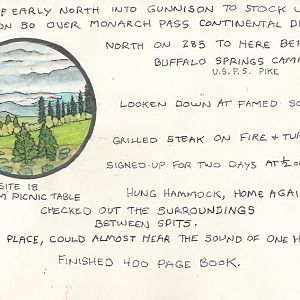 F EARLY NORTH INTO GUNNISON TO STOCK U
ON 50 OVER MONARCH PASS CONTINENTAL DI
NORTH ON 285 TO HERE BE
BUFFALO SPRINGS CAM
U.S.F.S. PIKE
LOOKEN DOWN AT FAMED SO
GRILLED STEAK ON FIRE & TU
SIGNED-UP FOR TWO DAYS AT ½ O
SITE 18
M PICNIC TABLE
HUNG HAMMOCK, HOME AGAI
CHECKED OUT THE SURROUNDINGS
BETWEEN SPITS.
PLACE, COULD ALMOST HEAR THE SOUND OF ONE H
FINISHED 400 PAGE BOOK.